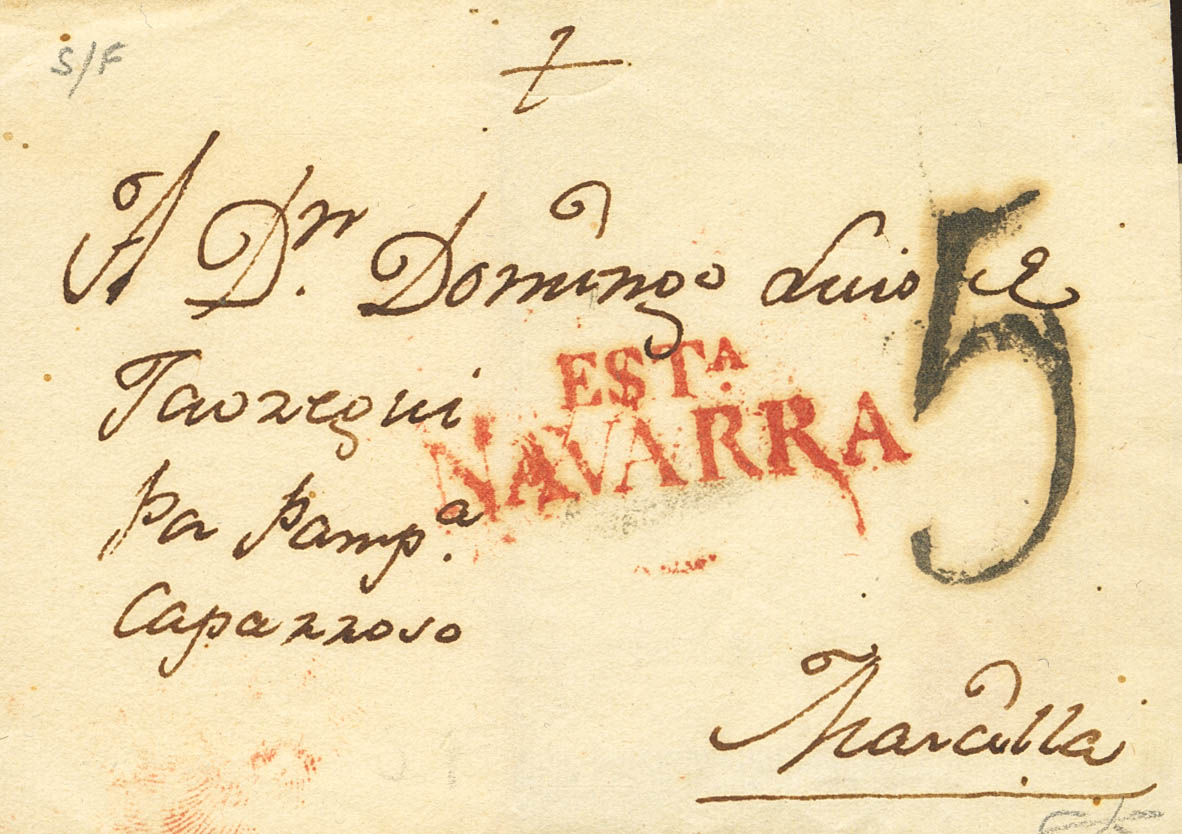 S/F
A Dn. Domingo Luis de
5
Jaorregui
ESTA.
NAVARRA
Pa Pampa.
Caparroso
Marcilla